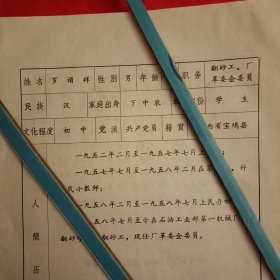 翻砂工、厂
姓名 罗祯祥 性别 男 年龄 职务 革委会委员
民族 汉 家庭出身 下中农 份 学生
文化程度 初中 党派 共产党员 籍贯 西省宝鸡县
一九五二年二月至一九五七年七月上
一九五七年七月至一九五八年二月
民小教师;
一九五八年二月至一九五八年七月上民办
五八年七月至今在石油工业部第一机械厂
翻砂 翻砂工,现任厂革委会委员。
人
简
历